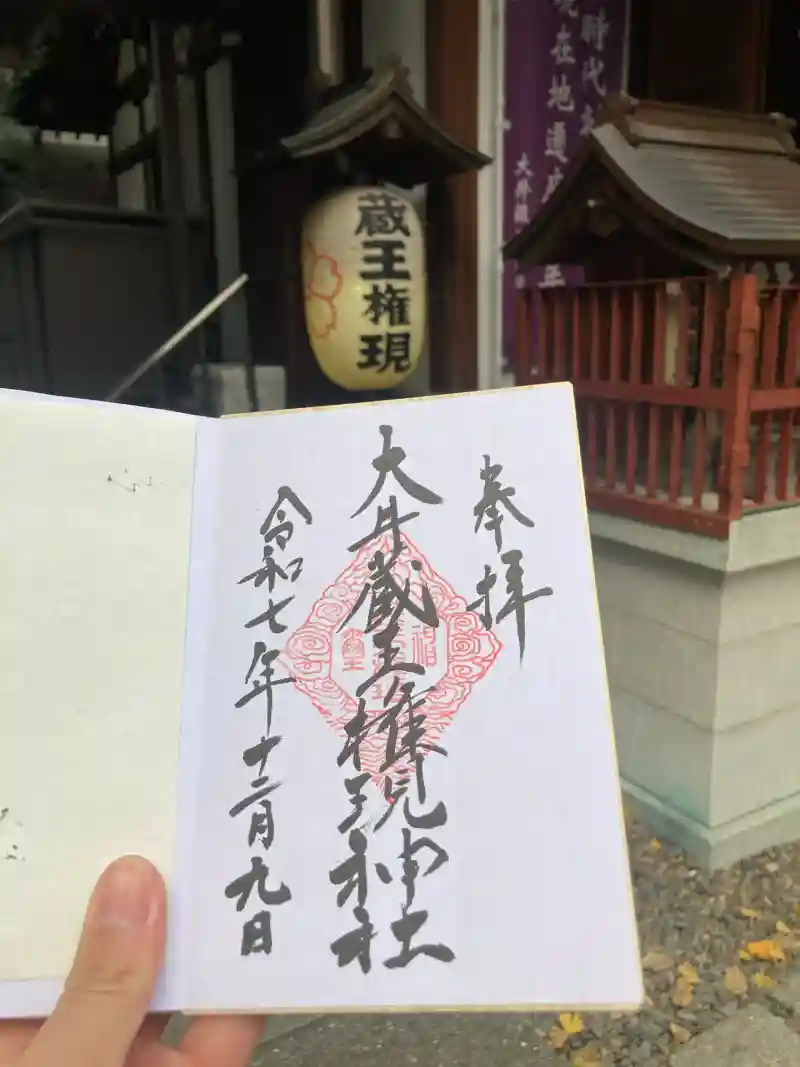 時代
現在地
大井蔵
蔵王権現
奉拝
大井蔵王権現神社
令和七年十二月九日